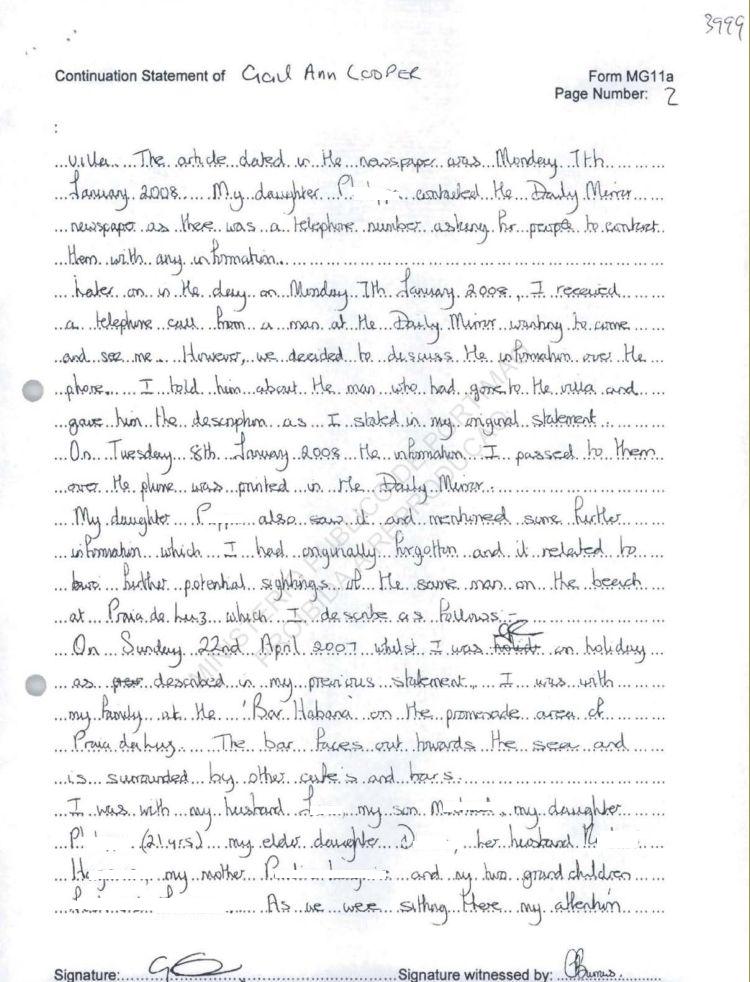 3999
Continuation Statement of Gail Ann COOPER
Form MG11a
Page Number: 2
:
villa. The article dated in the newspaper was Monday 7th
January 2008. My daughter P contacted the Daily Mirror
newspaper as there was a telephone number asking for people to contact
them with any information.
Later on in the day on Monday 7th January 2008, I received
a telephone call from a man at the Daily Mirror wanting to come
and see me. However, we decided to discuss the information over the
phone. I told him about the man who had gone to the villa and
gave him the description as I stated in my original statement.
On Tuesday 8th January 2008 the information I passed to them
over the phone was printed in the Daily Mirror.
My daughter P also saw it and mentioned some further
information which I had originally forgotten and it related to
two further potential sightings of the same man on the beach
at Praia da Luz which I describe as follows:-
On Sunday 22nd April 2007 whilst I was on holiday
as described in my previous statement, I was with
my family at the 'Bar Habana' on the promenade area of
Praia da Luz. The bar faces out towards the sea and
is surrounded by other cafe's and bars.
I was with my husband my son M my daughter
P (21yrs) my elder daughter D, her husband
H, my mother P and my two grand children
As we were sitting there my attention
MINISTERIA PUBLICO DE PORTIMAO
PROIBIDA A REPRODUCAO
Signature: Signature witnessed by: